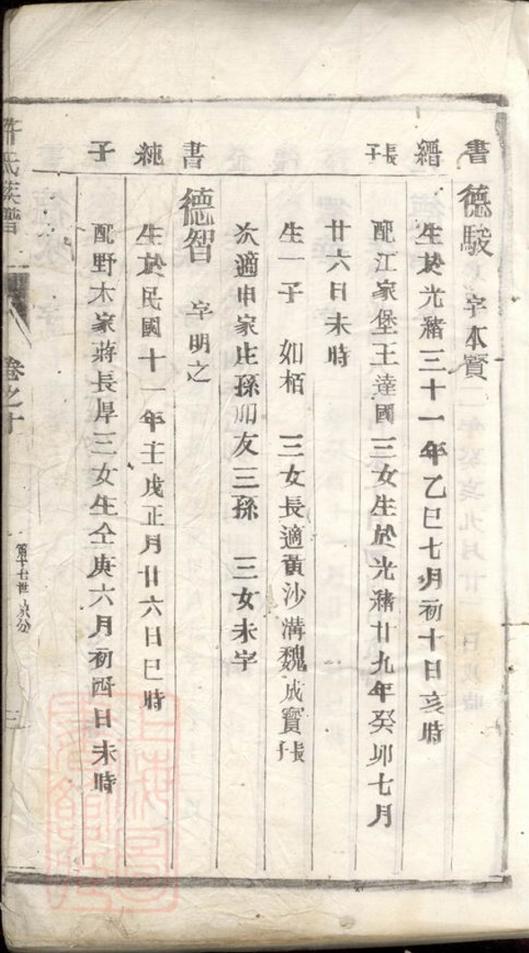 書 德駿 字本寳
縉 生於光緒三十一年乙巳七月初十日亥時
長子 配江家堡王達國三女生於光緒廿九年癸卯七月
廿六日未時
生一子 如栢 三女長適黃沙溝魏成寳長子
次適申家庄孫川友三孫 三女未字
書 德智 字明之
純 生於民國十一年壬戌正月廿六日巳時
子 配野木家蔣長厚三女生仝庚六月初四日未時
許氏族譜
卷之十
第十七世 次分
三